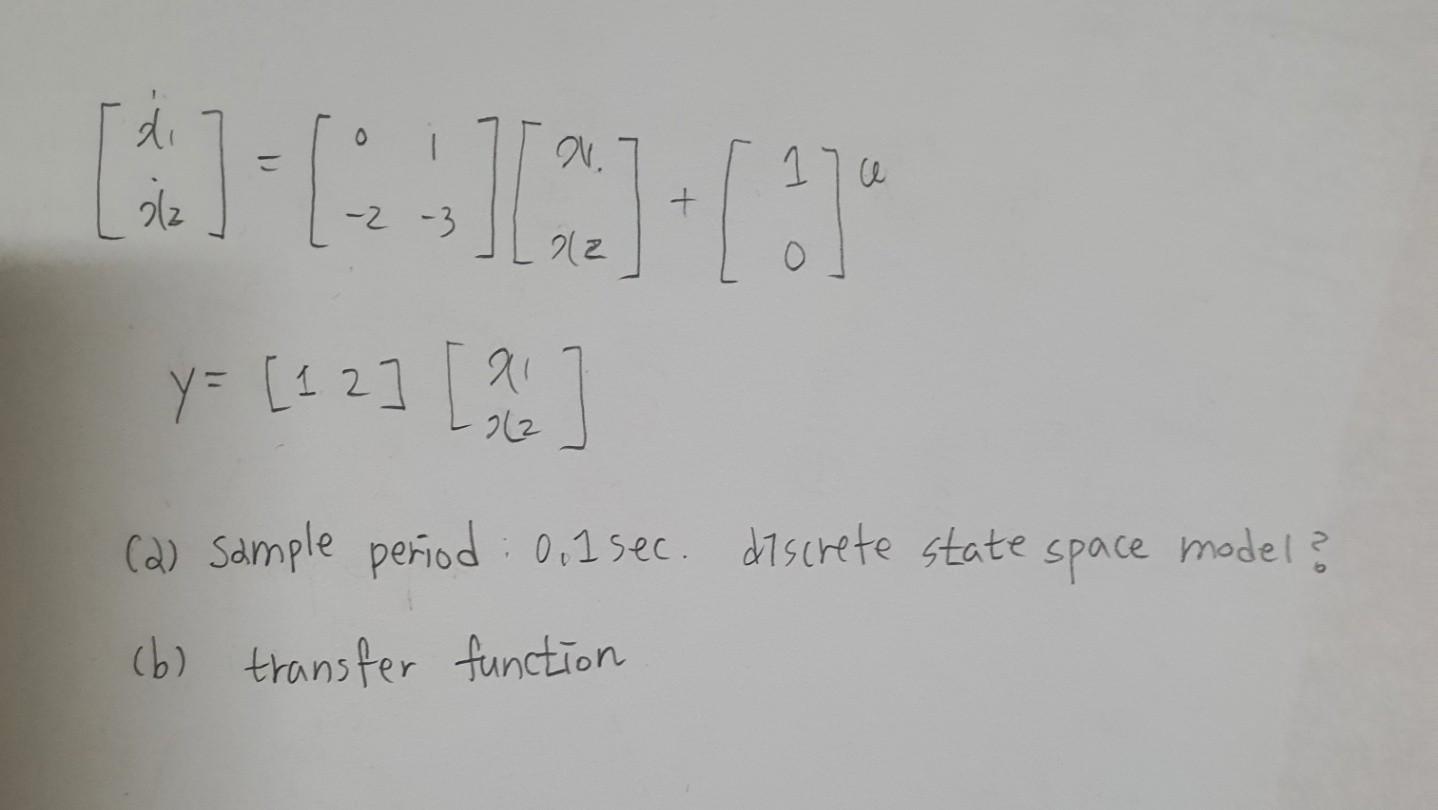 [ẋ₁ ẋ₂] = [0 1 -2 -3] [x₁ x₂] + [1 0] u
y = [1 2] [x₁ x₂]
(a) sample period : 0.1 sec. discrete state space model?
(b) transfer function